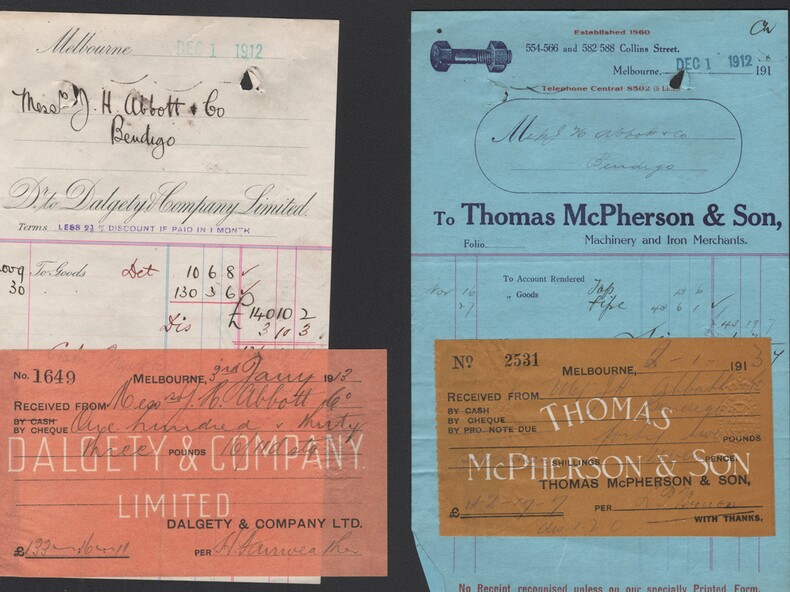 Melbourne DEC 1 1912
Messrs J. H. Abbott & Co
Bendigo
Dr. to Dalgety & Company Limited.
Terms LESS 2½ % DISCOUNT IF PAID IN 1 MONTH
Nov 9 To Goods Det 10 6 8
30 130 3 6
£ 140 10 2
Dis 3 10 3
No. 1649 MELBOURNE, 3rd Jany 1913
RECEIVED FROM Messrs J. H. Abbott & Co
BY CASH
BY CHEQUE One hundred & thirty
three POUNDS
DALGETY & COMPANY.
LIMITED
DALGETY & COMPANY LTD.
£ PER H Fairweather
Ch
Established 1860
554-566 and 582-588 Collins Street.
Melbourne, DEC 1 1912 191
Telephone Central 8502
Abbott & Co
Bendigo
To Thomas McPherson & Son,
Machinery and Iron Merchants.
Folio
To Account Rendered
Nov 16 „ Goods Tap
27 Pipe
No 2531
MELBOURNE, 3-1-1913
RECEIVED FROM
BY CASH
BY CHEQUE
BY PRO. NOTE DUE
POUNDS
THOMAS
SHILLINGS PENCE
McPHERSON & SON
THOMAS McPHERSON & SON,
£ PER
WITH THANKS.
No Receipt recognised unless on our specially Printed Form.